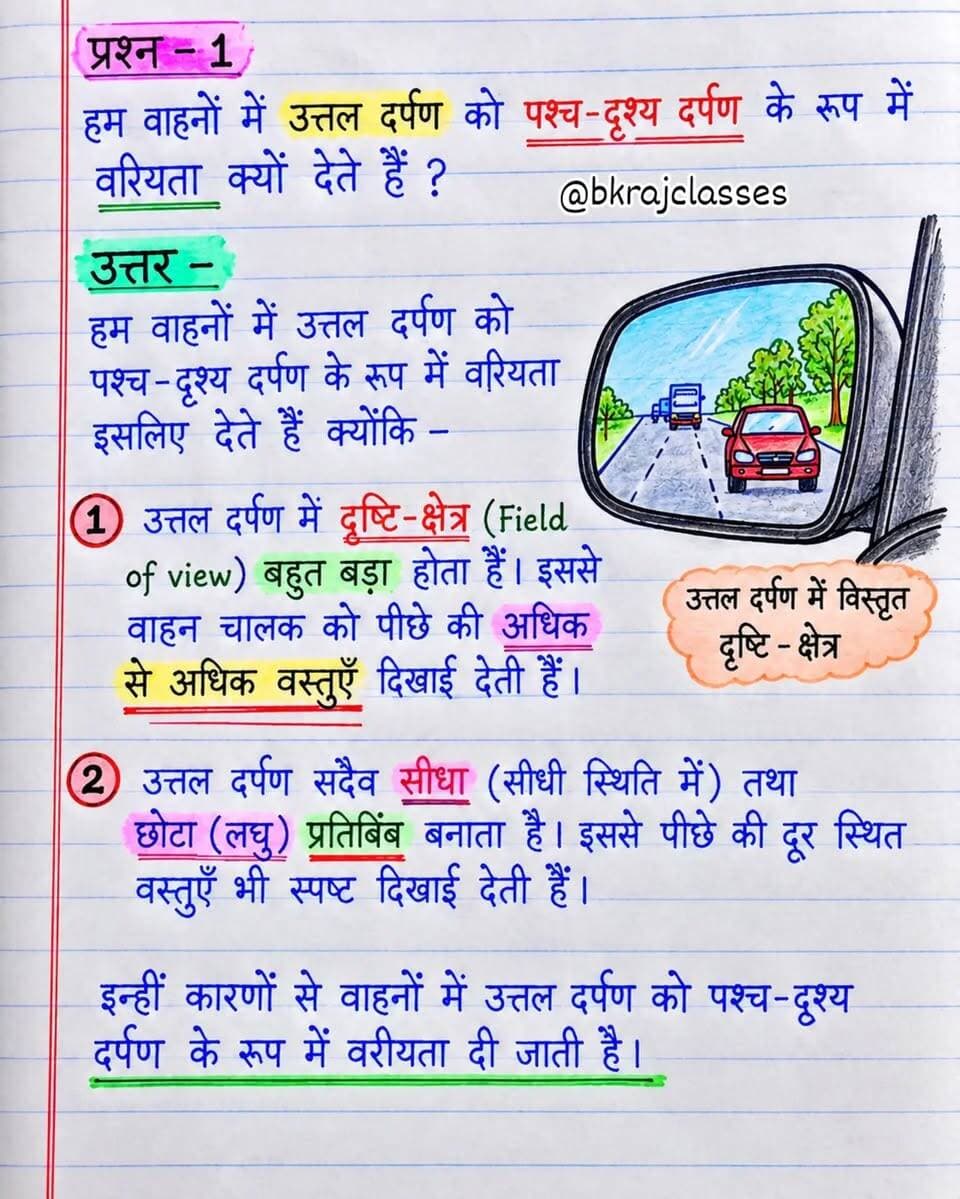 प्रश्न - 1
हम वाहनों में उत्तल दर्पण को पश्च-दृश्य दर्पण के रूप में
वरियता क्यों देते हैं ?
@bkrajclasses
उत्तर -
हम वाहनों में उत्तल दर्पण को
पश्च-दृश्य दर्पण के रूप में वरियता
इसलिए देते हैं क्योंकि -
1 उत्तल दर्पण में दृष्टि-क्षेत्र (Field
of view) बहुत बड़ा होता हैं। इससे
वाहन चालक को पीछे की अधिक
से अधिक वस्तुएँ दिखाई देती हैं।
उत्तल दर्पण में विस्तृत
दृष्टि - क्षेत्र
2 उत्तल दर्पण सदैव सीधा (सीधी स्थिति में) तथा
छोटा (लघु) प्रतिबिंब बनाता है। इससे पीछे की दूर स्थित
वस्तुएँ भी स्पष्ट दिखाई देती हैं।
इन्हीं कारणों से वाहनों में उत्तल दर्पण को पश्च-दृश्य
दर्पण के रूप में वरीयता दी जाती है।